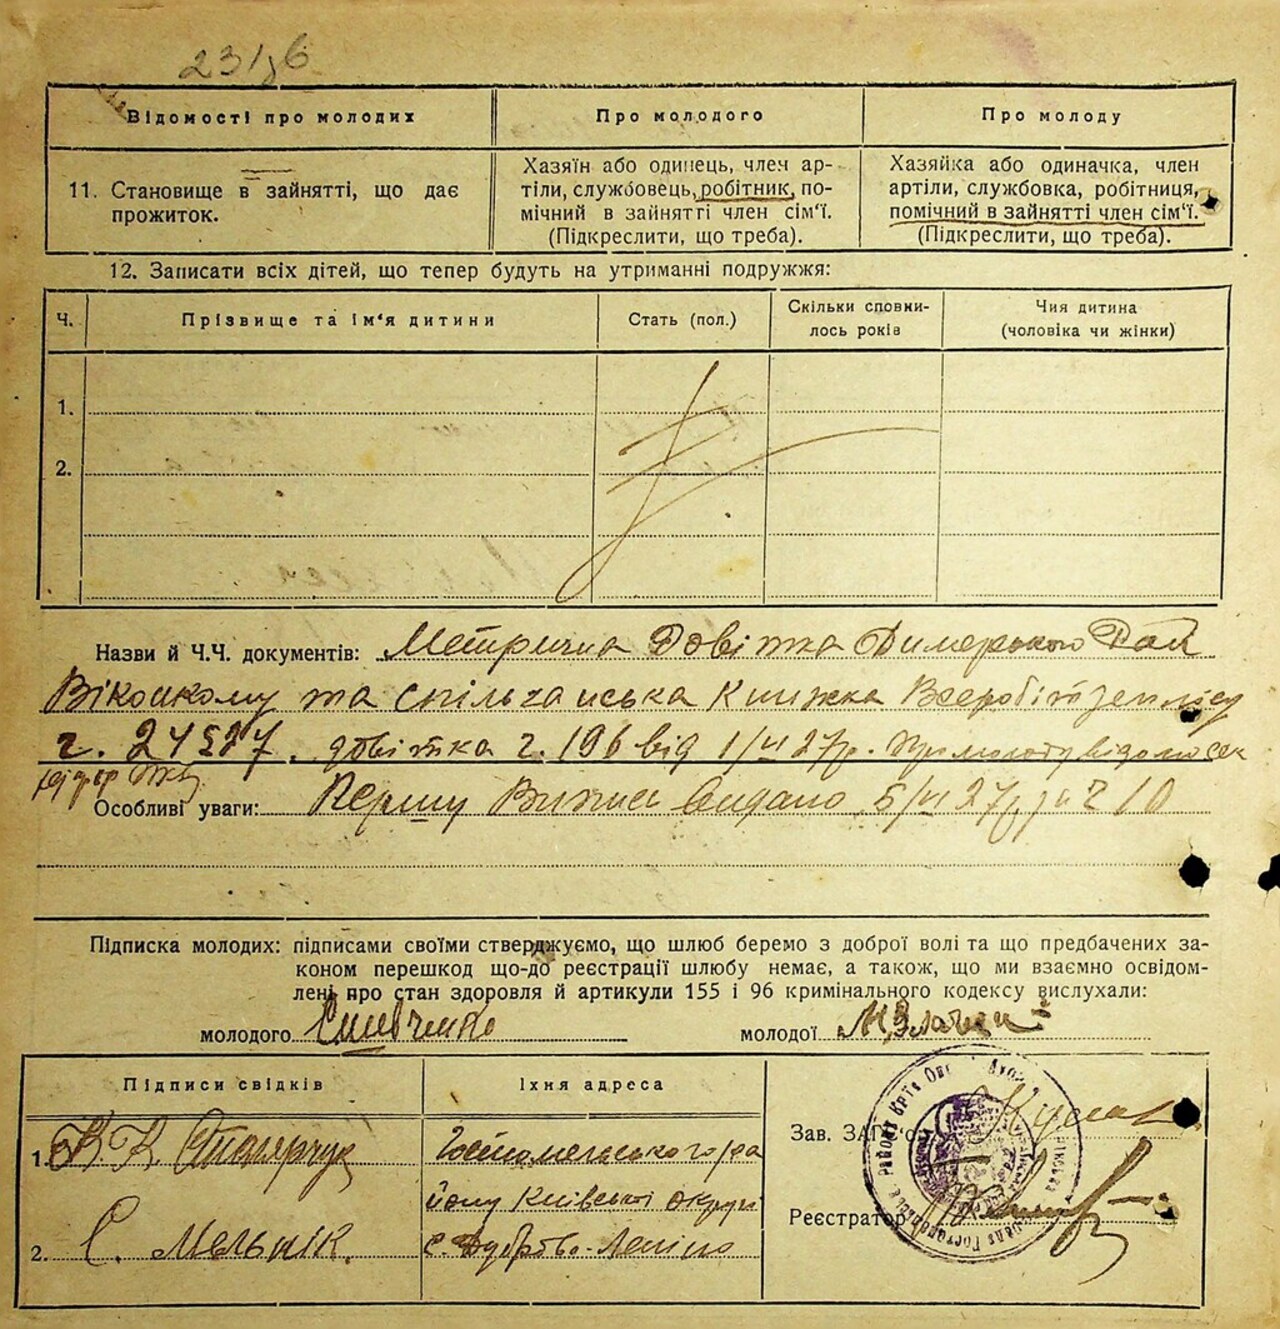 Відомості про молодих
Про молодого
Про молоду
11. Становище в зайнятті, що дає
прожиток.
Хазяїн або одинець, член ар-
тіли, службовець, робітник, по-
мічний в зайнятті член сім'ї.
(Підкреслити, що треба).
Хазяйка або одиначка, член
артіли, службовка, робітниця,
помічний в зайнятті член сім'ї.
(Підкреслити, що треба).
12. Записати всіх дітей, що тепер будуть на утриманні подружжя:
Ч.
Прізвище та ім'я дитини
Стать (пол.)
Скільки сповни-
лось років
Чия дитина
(чоловіка чи жінки)
1.
2.
Назви й Ч.Ч. документів: Метрична Довітка Димерського Рай
Віконкому та спільчанська Книжка Всеробітземлісу
довітка ч. 196 від 1/VI 27р.
Особливі уваги: Першу Випись видано 5/VI 27р за ч 10
Підписка молодих: підписами своїми стверджуємо, що шлюб беремо з доброї волі та що предбачених за-
коном перешкод що-до реєстрації шлюбу немає, а також, що ми взаємно освідом-
лені про стан здоровля й артикули 155 і 96 кримінального кодексу вислухали:
молодого
молодої
Підписи свідків
Їхня адреса
1.
Гостомельського ра
йону Київської округи
2. С. Мельнік.
с.
Зав. ЗАГ'ом
Реєстратор